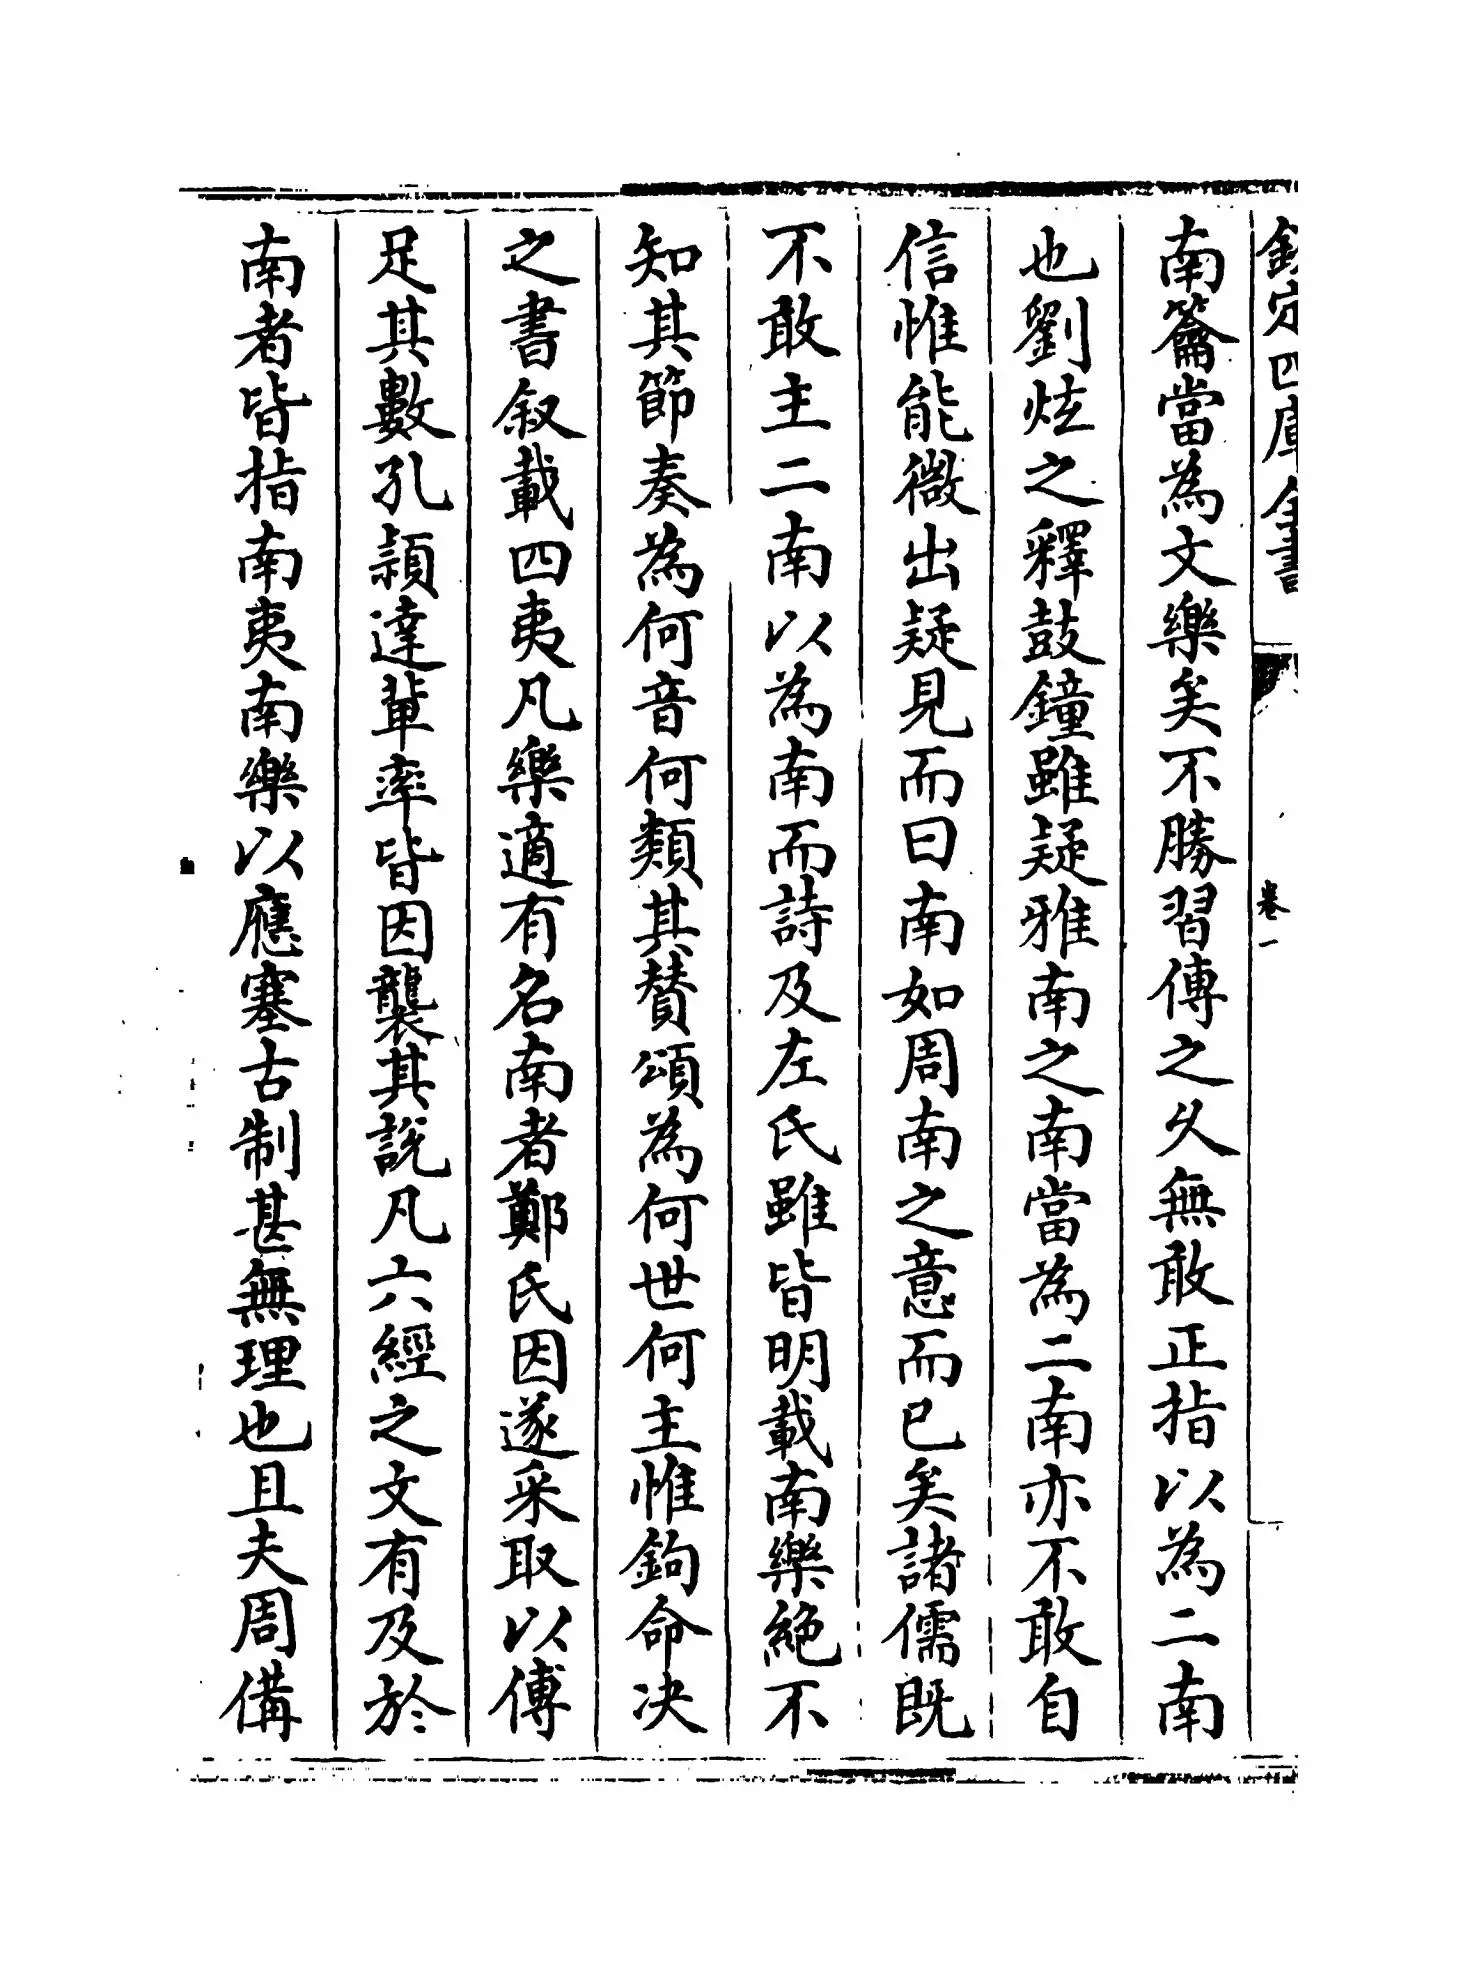 欽定四庫全書
卷一
南籥當為文樂矣不勝習傳之久無敢正指以為二南
也劉炫之釋鼓鐘雖疑雅南之南當為二南亦不敢自
信惟能微出疑見而曰南如周南之意而已矣諸儒既
不敢主二南以為南而詩及左氏雖皆明載南樂絶不
知其節奏為何音何類其賛頌為何世何主惟鉤命决
之書叙載四夷凡樂適有名南者鄭氏因遂采取以傅
足其數孔頴達軰率皆因襲其説凡六經之文有及於
南者皆指南夷南樂以應塞古制甚無理也且夫周備